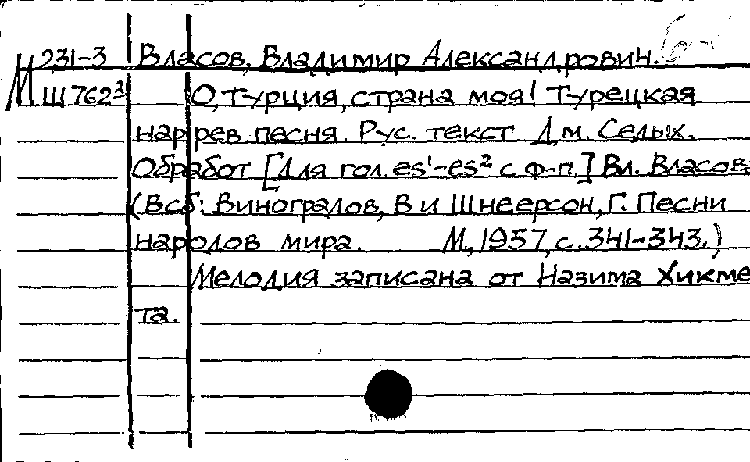 М 231-3 Власов, Владимир Александрович.
Ш 762³ О, Турция, страна моя! Турецкая
нар рев песня. Рус. текст Дм. Седых.
Обработ [Для гол. es¹-es² с ф-п.] Вл. Власова
(В сб: Виноградов, В и Шнеерсон, Г. Песни
народов мира. М, 1957, с. 341-343.)
Мелодия записана от Назима Хикме
та.